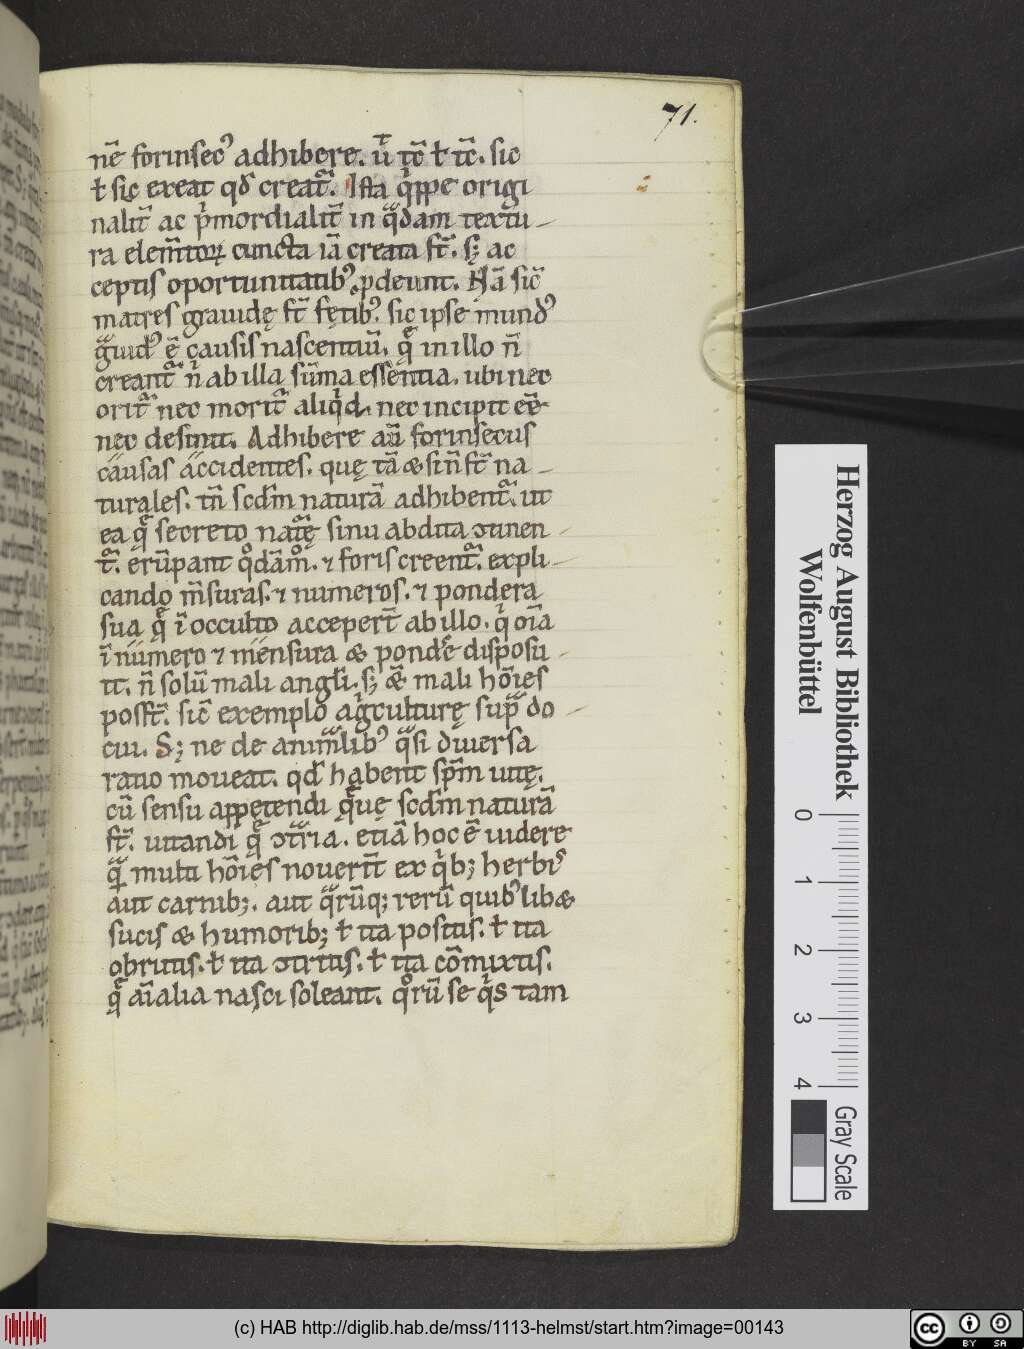 71.
nē forinsecꝰ adhibere. ut̄ tc̄ ł tc̄. sic
ł sic exeat qđ creat᷑. Ista q'ppe origi
nalit̄ ac p'mordialit̄ in qᵃdam textu
ra elem̄toꝝ cuncta iā creata st̄. sꝫ ac
ceptis oportunitatibꝰ ꝓdeunt. Nā sic̄
matres grauidę st̄ fętibꝰ. sic ipse mundꝰ
gᵃuidꝰ ē causis nascentiū. q̄ in illo n̄
creant᷑ n̄ ab illa sūma essentia. ubi nec
orit᷑ nec morit᷑ aliq'd. nec incipit eē
nec desinit. Adhibere aū forinsecus
causas accidentes. quę tā & sin̄ st̄ na
turales. tn̄ scdm̄ naturā adhibent᷑. ut
ea q̄ secreto nat᷑ę sinu abdita ɔtinen
t᷑. erūpant qᵒdām̊. ⁊ foris creent᷑. expli
cando m̄suras. ⁊ numeros. ⁊ pondera
sua q̄ ī occulto acceper̄t ab illo. q' oīa
ī numero ⁊ mensura & pondĕ disposu
it. n̄ solū mali angl̄i. sꝫ & mali hōies
posst̄. sic̄ exemplo ag'culturę supᵃ do
cui. Sꝫ ne de anim̄libꝰ qᵃsi diuersa
ratio moueat. qđ habent sp̄m uitę.
cū sensu appetendi q̄ quę scdm̄ naturā
st̄. uitandi q̄ ɔtᵃria. etiā hoc ē uidere
qᵃ multi hōies nouer̄t ex q'bꝫ herbis
aut carnibꝫ. aut qᵃrūqꝫ rerū quibꝰlib&
sucis & humoribꝫ ł ita positis. ł ita
obrutis. ł ita ɔtritis. ł ita cōmixtis.
q̄ aīalia nasci soleant. qᵒrū se q's tam
Herzog August Bibliothek
Wolfenbüttel
0 1 2 3 4
Gray Scale
(c) HAB http://diglib.hab.de/mss/1113-helmst/start.htm?image=00143
cc BY SA